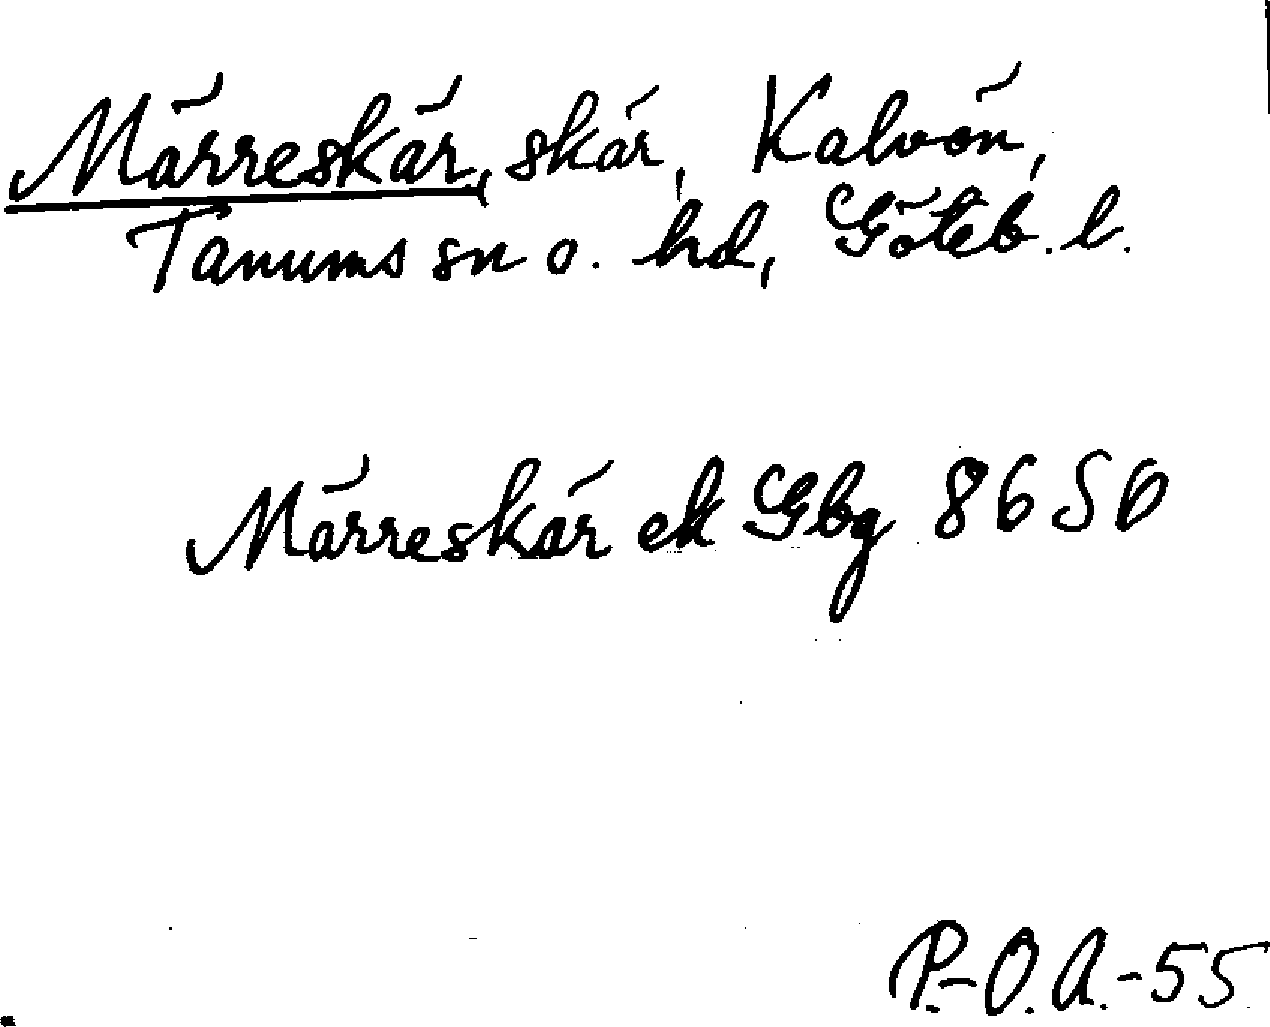 Märreskär, skär, Kalvön,
Tanums sn o. hd, Göteb. l.
Märreskär ek Gbg 8650
P.-O.A.-55